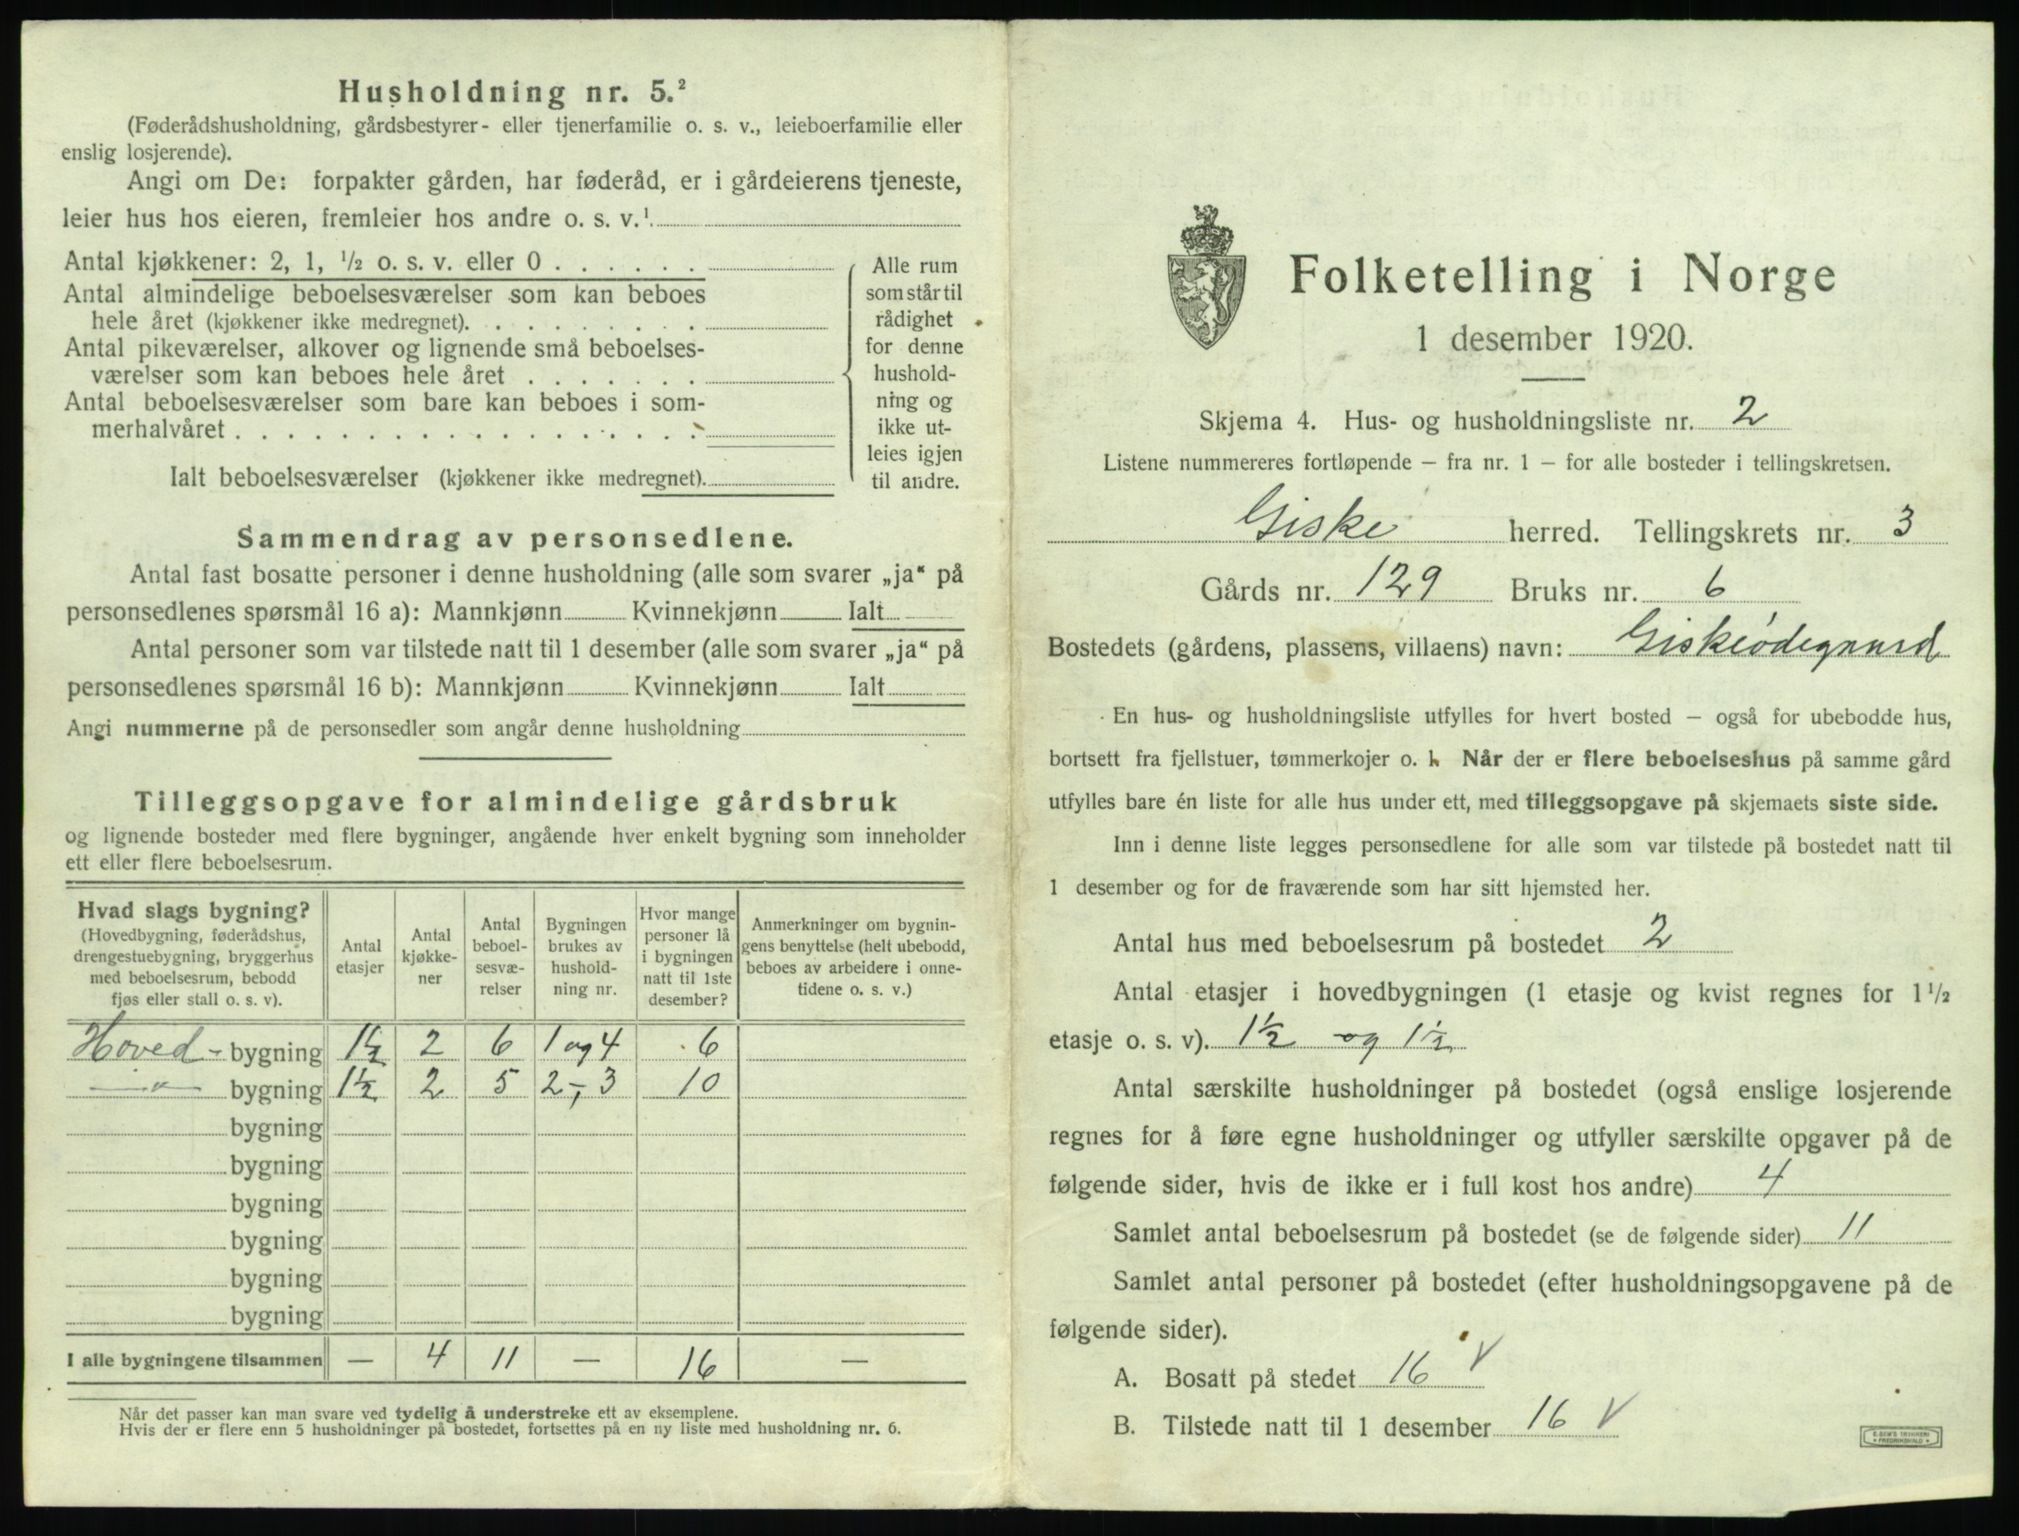 Husholdning nr. 5.²
(Føderådshusholdning, gårdsbestyrer- eller tjenerfamilie o. s. v., leieboerfamilie eller
enslig losjerende).
Angi om De: forpakter gården, har føderåd, er i gårdeierens tjeneste,
leier hus hos eieren, fremleier hos andre o. s. v.¹
Antal kjøkkener: 2, 1, ½ o. s. v. eller 0
Antal almindelige beboelsesværelser som kan beboes
hele året (kjøkkener ikke medregnet).
Antal pikeværelser, alkover og lignende små beboelses-
værelser som kan beboes hele året
Antal beboelsesværelser som bare kan beboes i som-
merhalvåret
Ialt beboelsesværelser (kjøkkener ikke medregnet).
Alle rum
som står til
rådighet
for denne
hushold-
ning og
ikke ut-
leies igjen
til andre.
Sammendrag av personsedlene.
Antal fast bosatte personer i denne husholdning (alle som svarer „ja“ på
personsedlenes spørsmål 16 a): Mannkjønn Kvinnekjønn Ialt
Antal personer som var tilstede natt til 1 desember (alle som svarer „ja“ på
personsedlenes spørsmål 16 b): Mannkjønn Kvinnekjønn Ialt
Angi nummerne på de personsedler som angår denne husholdning
Tilleggsopgave for almindelige gårdsbruk
og lignende bosteder med flere bygninger, angående hver enkelt bygning som inneholder
ett eller flere beboelsesrum.
Hvad slags bygning?
(Hovedbygning, føderådshus,
drengestuebygning, bryggerhus
med beboelsesrum, bebodd
fjøs eller stall o. s. v).
Antal
etasjer
Antal
kjøkke-
ner
Antal
beboel-
sesvæ-
relser
Bygningen
brukes av
hushold-
ning nr.
Hvor mange
personer lå
i bygningen
natt til 1ste
desember?
Anmerkninger om bygnin-
gens benyttelse (helt ubebodd,
beboes av arbeidere i onne-
tidene o. s. v.)
Hoved- bygning 1½ 2 6 1 og 4 6
—„— bygning 1½ 2 5 2,- 3 10
bygning
bygning
bygning
bygning
bygning
bygning
I alle bygningene tilsammen — 4 11 — 16 —
Når det passer kan man svare ved tydelig å understreke ett av eksemplene.
Hvis der er flere enn 5 husholdninger på bostedet, fortsettes på en ny liste med husholdning nr. 6.
Folketelling i Norge
1 desember 1920.
Skjema 4. Hus- og husholdningsliste nr. 2
Listene nummereres fortløpende – fra nr. 1 – for alle bosteder i tellingskretsen.
Giske herred. Tellingskrets nr. 3
Gårds nr. 129 Bruks nr. 6
Bostedets (gårdens, plassens, villaens) navn: Giskeødegaard
En hus- og husholdningsliste utfylles for hvert bosted – også for ubebodde hus,
bortsett fra fjellstuer, tømmerkojer o. l. Når der er flere beboelseshus på samme gård
utfylles bare én liste for alle hus under ett, med tilleggsopgave på skjemaets siste side.
Inn i denne liste legges personsedlene for alle som var tilstede på bostedet natt til
1 desember og for de fraværende som har sitt hjemsted her.
Antal hus med beboelsesrum på bostedet 2
Antal etasjer i hovedbygningen (1 etasje og kvist regnes for 1½
etasje o. s. v). 1½ og 1½
Antal særskilte husholdninger på bostedet (også enslige losjerende
regnes for å føre egne husholdninger og utfyller særskilte opgaver på de
følgende sider, hvis de ikke er i full kost hos andre) 4
Samlet antal beboelsesrum på bostedet (se de følgende sider) 11
Samlet antal personer på bostedet (efter husholdningsopgavene på de
følgende sider).
A. Bosatt på stedet 16 V
B. Tilstede natt til 1 desember 16 V